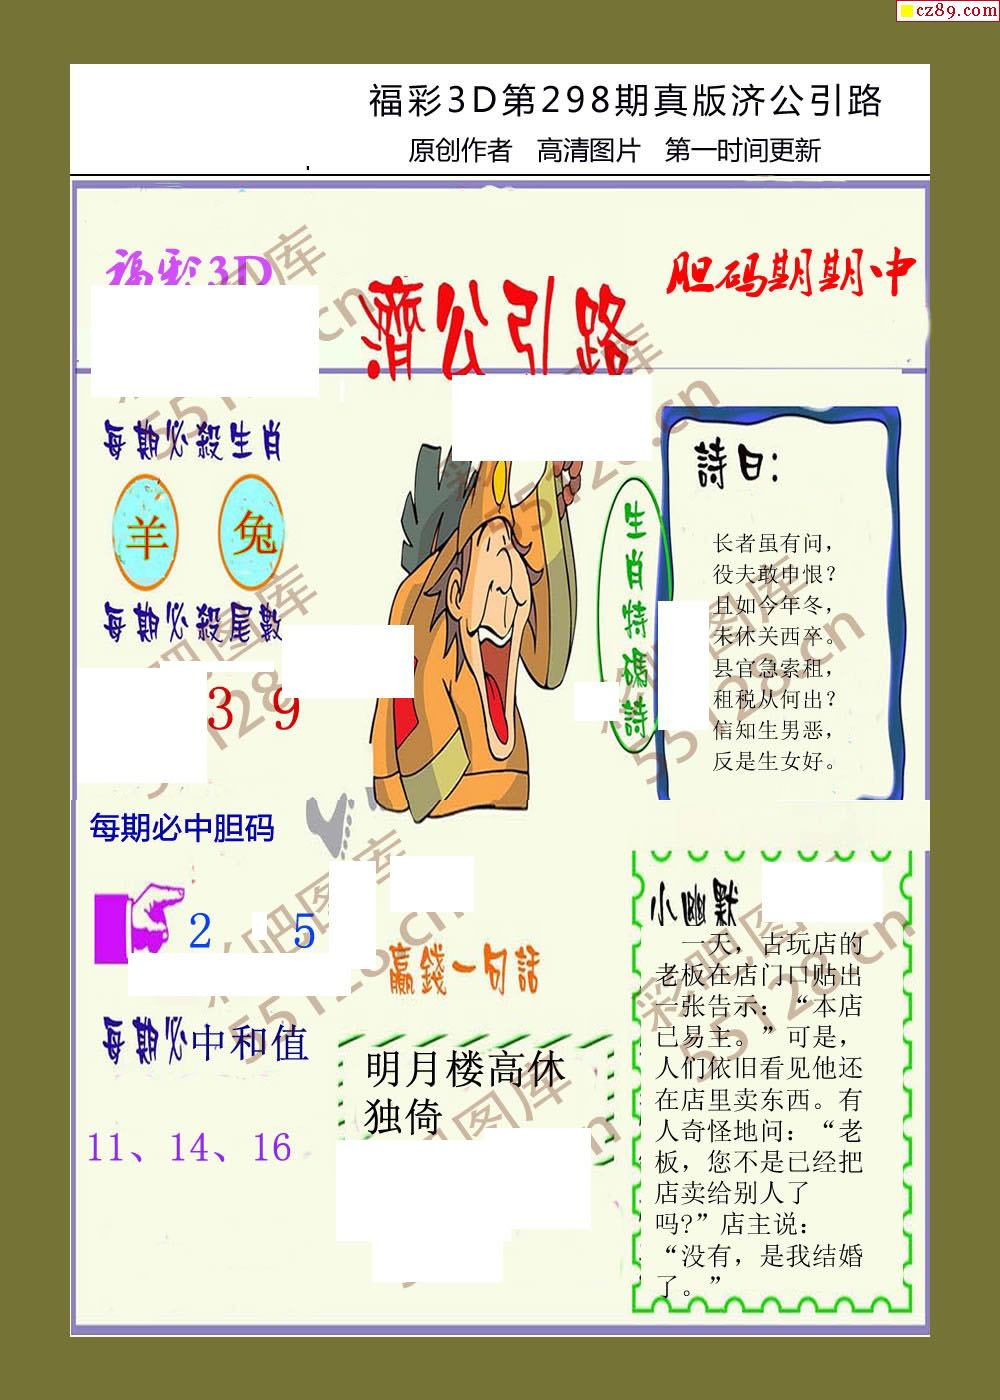 cz89.com
福彩3D第298期真版济公引路
原创作者 高清图片 第一时间更新
福彩3D
濟公引路
胆码期期中
每期必殺生肖
羊 兔
每期必殺尾數
3 9
生肖特碼詩
詩曰：
长者虽有问，
役夫敢申恨？
且如今年冬，
未休关西卒。
县官急索租，
租税从何出？
信知生男恶，
反是生女好。
每期必中胆码
2 5
每期必中和值
11、14、16
贏錢一句話
明月楼高休
独倚
小幽默
一天，古玩店的
老板在店门口贴出
一张告示：“本店
已易主。”可是，
人们依旧看见他还
在店里卖东西。有
人奇怪地问：“老
板，您不是已经把
店卖给别人了
吗?”店主说：
“没有，是我结婚
了。”
彩吧图库
55128.cn